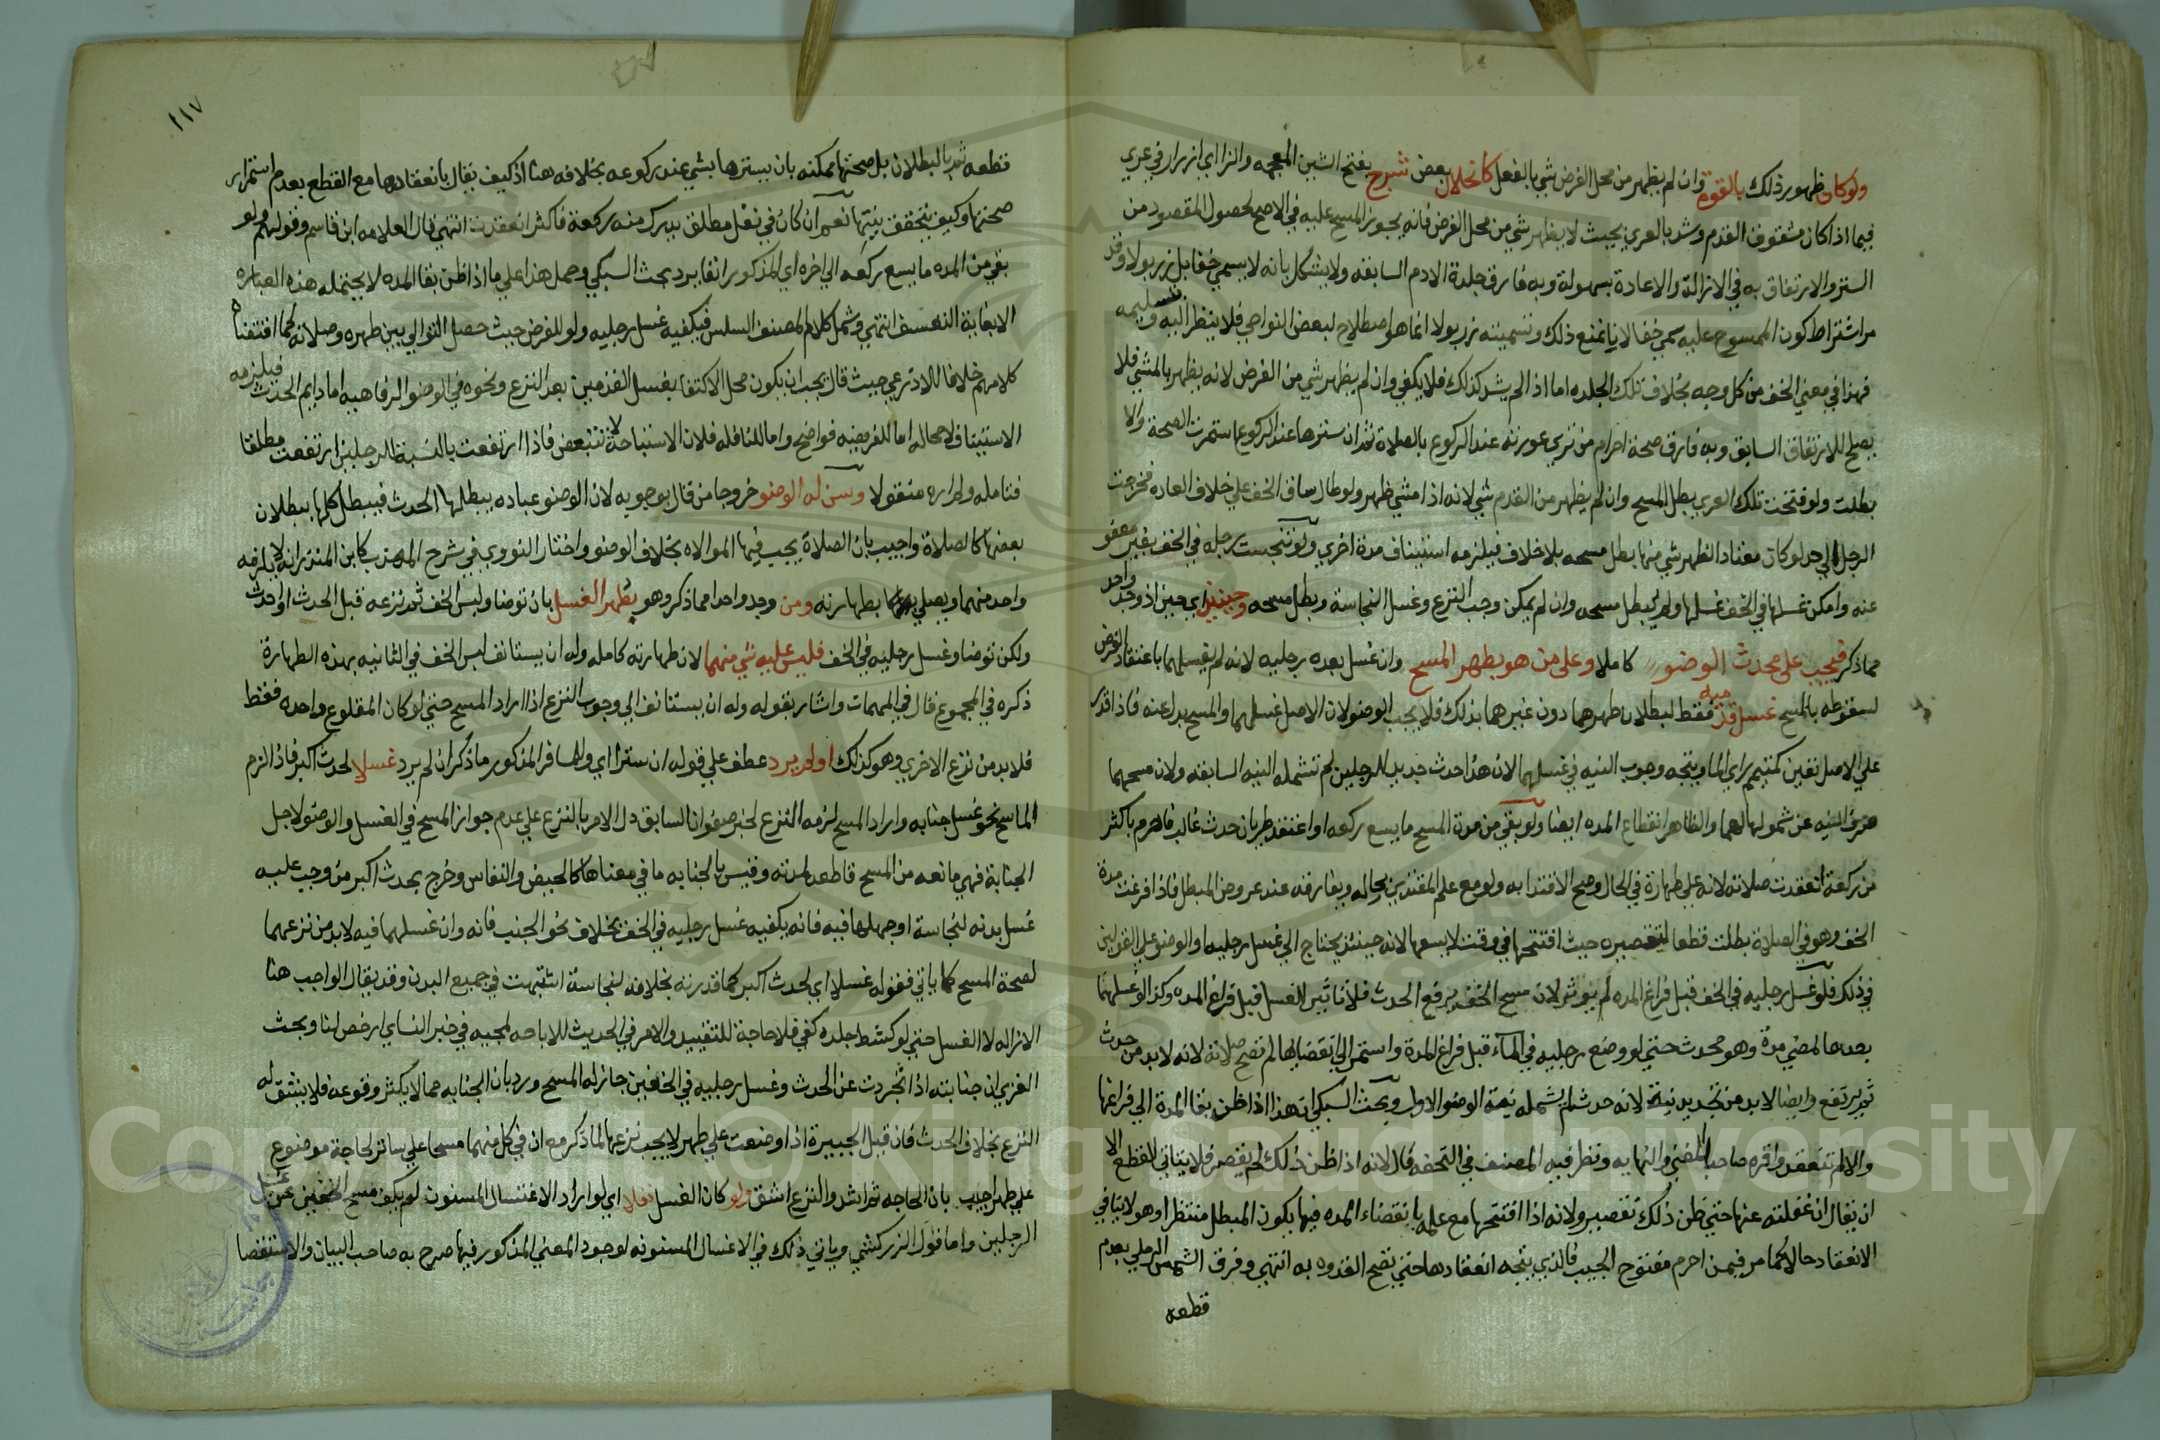 ولو كان ظهور ذلك بالقوة وان لم يظهر من محل الفرض شي بالفعل كانحلال بعض شرج بفتح الشين المعجمه والرا اي ازرار في عري
فيما اذا كان مشقوق القدم وشد بالعري بحيث لا يظهر شي من محل الفرض فانه يجوز المسح عليه في الاصح لحصول المقصود من
الستر والارتفاق به في الازالة والاعادة بسهولة وبه فارق جلدة الادم السابقه ولا يشكل بانه لا يسمي خفا بل زربولا وقد
مر اشتراط كون الممسوح عليه يسمي خفا لانا نمنع ذلك وتسميته زربولا انما هو اصطلاح لبعض النواحي فلا ينظر اليه وبتسليمه
فهذا في معني الخف من كل وجه بخلاف تلك الجلده اما اذا لم يشد كذلك فلا يكفي وان لم يظهر شي من الفرض لانه يظهر بالمشي فلا
يصلح للارتفاق السابق وبه فارق صحة احرام من تري عورته عند الركوع بالصلاة ثم ان سترها عند الركوع استمرت الصحة والا
بطلت ولو فتحت تلك العري بطل المسح وان لم يظهر من القدم شي لانه اذا مشي ظهر ولو طال ساق الخف علي خلاف العاده فخرجت
الرجل الي حد لو كان معتادا لظهر شي منها بطل مسحه بلا خلاف فيلزمه استيناف مدة اخري ولو تنجست رجله في الخف بغير معفو
عنه وامكن غسلها في الخف غسلها ولم يبطل مسحه وان لم يمكن وجب النزع وغسل النجاسة وبطل مسحه وحينئذ اي حين اذ وجد واحد
مما ذكر فيجب علي محدث الوضو كاملا وعلي من هو بطهر المسح وان غسل بعده رجليه لانه لم يغسلهما باعتقاد الفرض
لسقوطه بالمسح غسل قدميه فقط لبطلان طهرهما دون غيرهما بذلك فلا يجب الوضو لان الاصل غسلهما والمسح بدل عنه فاذا قدر
علي الاصل تعين كمتيمم راي الما ويتجه وجوب النيه في غسلهما لان هذا حدث جديد للرجلين لم تشمله النيه السابقه ولان مسحهما
صرف النيه عن شمولها لهما والظاهر انقطاع المده ايضا ولو بقي من مدة المسح ما يسع ركعه او اعتقد طريان حدث غالب فاحرم باكثر
من ركعة انعقدت صلاته لانه علي طهارة في الحال وصح الاقتدا به ولو مع علم المقتدين بحاله ويفارقه عند عروض المبطل فاذا فرغت مدة
الخف وهو في الصلاة بطلت قطعا لتقصيره حيث افتتحها في وقت لا يسعها لانه حينئذ يحتاج الي غسل رجليه او الوضو علي القولين
في ذلك فلو غسل رجليه في الخف قبل فراغ المده لم يوثر لان مسح الخف يرفع الحدث فلا تاثير للغسل قبل فراغ المده وكذا لو غسلهما
بعدها لمضي مدة وهو محدث حتي لو وضع رجليه في الماء قبل فراغ المدة واستمر الي انقضائها لم تصح صلاته لانه لا بد من حدث
ثم يرتفع وايضا لا بد من تجديد نية لانه حدث لم يشمله نية الوضو الاول وبحث السبكي ان هذا اذا ظن بقا المدة الي فراغها
والا لم تنعقد واقره صاحب المغني والنهايه ونظر فيه المصنف في التحفه قال لانه اذا ظن ذلك لم يقصر فلا يتاتي القطع الا
ان يقال ان غفلته عنها حتي ظن ذلك تقصير ولانه اذا افتتحها مع علمه بانقضاء المده فيها يكون المبطل منتظرا وهو لا ينافي
الانعقاد حالا كما مر فيمن احرم مفتوح الجيب فالذي يتجه انعقادها حتي تصح القدوه به انتهي وفرق الشمس الرملي بعدم
قطعه
١١٧
قطعه ثم بالبطلان بل صحتها ممكنه بان يسترها بشي عند ركوعه بخلافه هنا اذ كيف يقال بانعقادها مع القطع بعدم استمرار
صحتها وكيف يتحقق نيتها نعم ان كان في نفل مطلق يدرك منه ركعة فاكثر انعقدت انتهي قال العلامه ابن قاسم وقولهم ولو
بقي من المده ما يسع ركعه الي اخره اي المذكور انفا يرد بحث السبكي وحمل هذا علي ما اذا ظن بقا المده لا يحتمله هذه العباره
الا بغاية التعسف انتهي وشمل كلام المصنف السلس فيكفيه غسل رجليه ولو للفرض حيث حصل التوالي بين طهره وصلاته كما اقتضاه
كلامهم خلافا للاذرعي حيث قال يجب ان يكون محل الاكتفا بغسل القدمين بعد النزع ونحوه في الوضو الرفاهيه اما دايم الحدث فيلزمه
الاستيناف لا محاله اما للفريضه فواضح واما للنافله فلان الاستباحة لا تتبعض فاذا ارتفعت بالنسبة للرجلين ارتفعت مطلقا
فتامله ولم اره منقولا وسن له الوضو خروجا من قال بوجوبه لان الوضو عباده يبطلها الحدث فيبطل كلها ببطلان
بعضها كالصلاة واجيب بان الصلاة يجب فيها الموالاه بخلاف الوضو واختار النووي في شرح المهذب كابن المنذر انه لا يلزمه
واحد منهما ويصلي بطهارته ومن وجد واحدا مما ذكر وهو بطهر الغسل بان توضا ولبس الخف ثم نزعه قبل الحدث او احدث
ولكن توضا وغسل رجليه في الخف فليس عليه شي منهما لان طهارته كامله وله ان يستانف لبس الخف في الثانيه بهذه الطهارة
ذكره في المجموع قال في المهمات واشار بقوله وله ان يستانف الي وجوب النزع اذا اراد المسح حتي لو كان المقلوع واحده فقط
فلا بد من نزع الاخري وهو كذلك اولم يرد عطف علي قوله ان ستر اي ولمسافر المذكور ما ذكر ان لم يرد غسلا لحدث اكبر فاذا لزم
الماسح نحو غسل جنابه واراد المسح لزمه النزع لخبر صفوان السابق دل الامر بالنزع علي عدم جواز المسح في الغسل والوضو لاجل
الجنابة فهي مانعه من المسح قاطعه لمدته وقيس بالجنابه ما في معناها كالحيض والنفاس وخرج بحدث اكبر من وجب عليه
غسل بدنه لنجاسة او جهلها فيه فانه يكفيه غسل رجليه في الخف بخلاف نحو الجنب فانه وان غسلهما فيه لا بد من نزعهما
لصحة المسح كما ياتي فقوله غسلا اي لحدث اكبر كما قدرته بخلافه لنجاسة اشتبهت في جميع البدن وقد يقال الواجب هنا
الازاله لا الغسل حتي لو كشط جلده كفي فلا حاجة للتقييد والامر في الحديث للاباحه لمجيه في خبر النساي ارخص لنا وبحث
الغزي ان جنابته اذا تجردت عن الحدث وغسل رجليه في الخفين جاز له المسح ورد بان الجنابه مما لا يكثر وقوعه فلا يشق له
النزع بخلاف الحدث فان قيل الجبيرة اذا وضعت علي طهر لا يجب نزعها لما ذكر مع ان في كل منهما مسحا علي ساتر لحاجة موضوع
علي طهر اجيب بان الحاجه ثم اشد والنزع اشق ولو كان الغسل نفلا اي لو اراد الاغتسال المسنون لم يكف مسح الخفين عن غسل
الرجلين واما قول الزركشي وياتي ذلك في الاغسال المسنونه لوجود المعني المذكور فيها صرح به صاحب البيان والاستقصا
Copyright © King Saud University